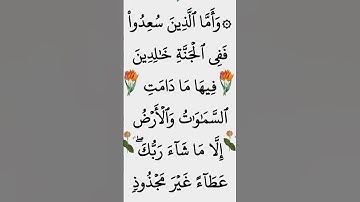 ۞ وَأَمَّا ٱلَّذِينَ سُعِدُوا۟
فَفِى ٱلْجَنَّةِ خَـٰلِدِينَ
فِيهَا مَا دَامَتِ
ٱلسَّمَـٰوَٰتُ وَٱلْأَرْضُ
إِلَّا مَا شَآءَ رَبُّكَ ۖ
عَطَآءً غَيْرَ مَجْذُوذٍ